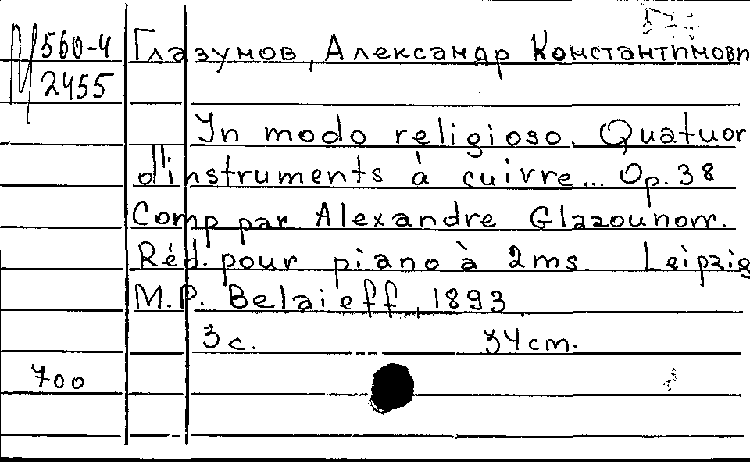 М 560-4
2455
Глазунов, Александр Константинови
In modo religioso. Quatuor
d'instruments à cuivre... Op. 38
Comp par Alexandre Glazounow.
Réd. pour piano à 2ms. Leipzig
M.P. Belaieff, 1893
3 с. 34 cm.
700